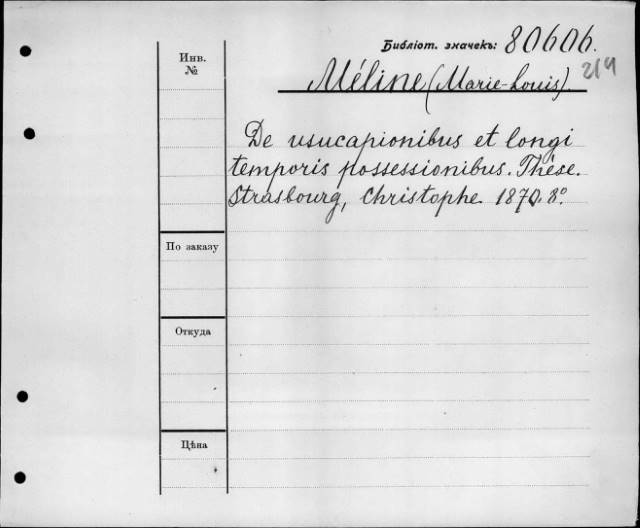 Библіот. значекъ: 80606.
Инв.
№
214
Méline (Marie-Louis).
De usucapionibus et longi
temporis possessionibus. Thèse.
Strasbourg, Christophe 1870. 8º.
По заказу
Откуда
Цѣна